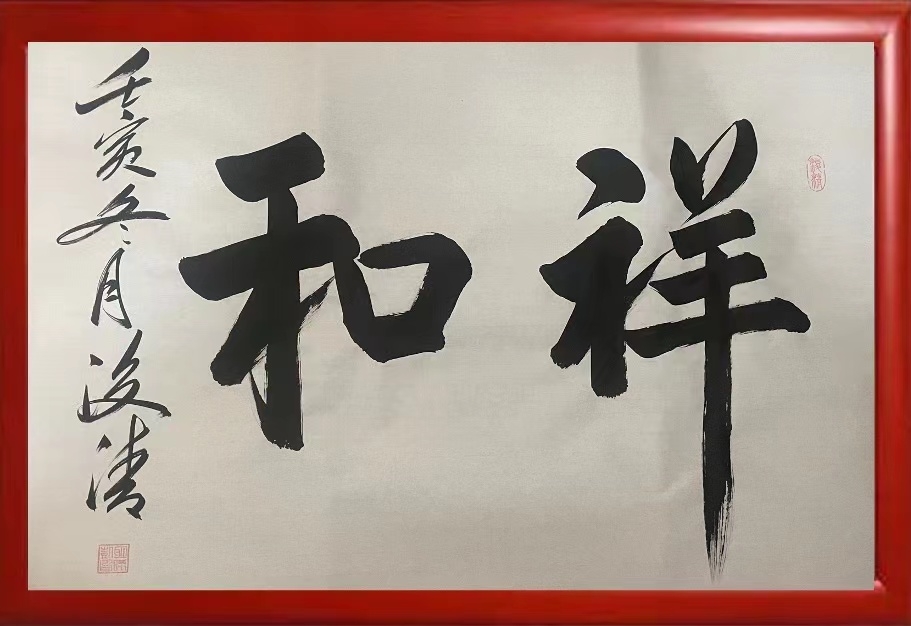 祥和
壬寅冬月浚清